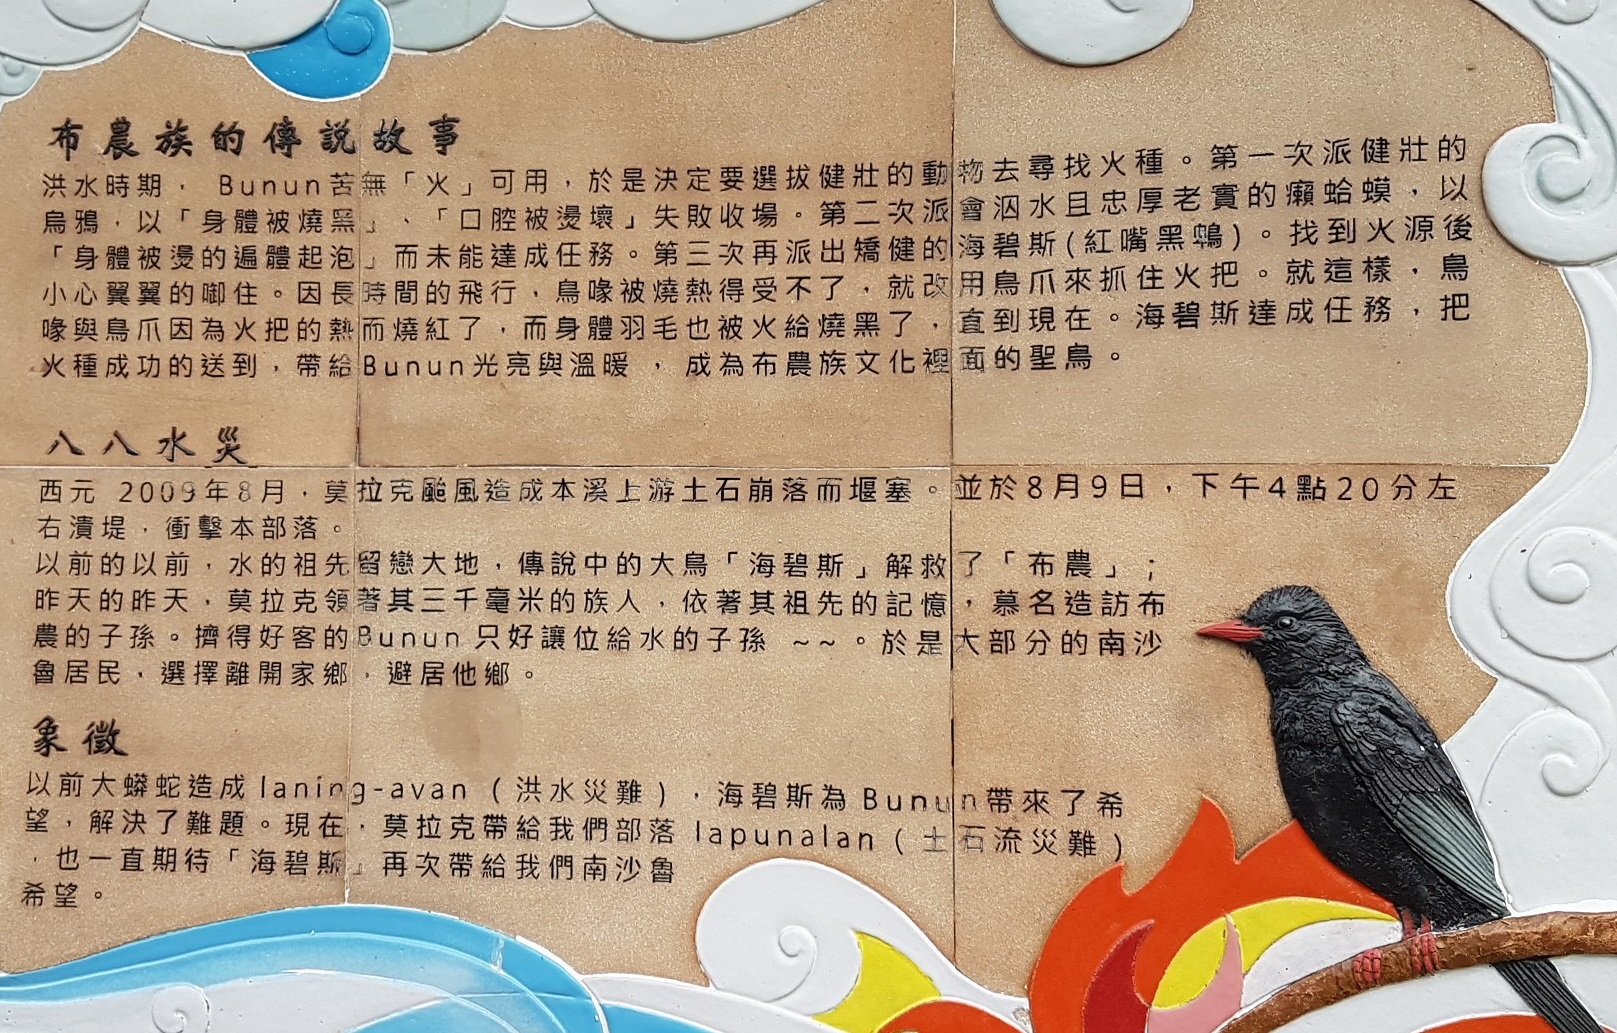 布農族的傳說故事
洪水時期，Bunun苦無「火」可用，於是決定要選拔健壯的動物去尋找火種。第一次派健壯的
烏鴉，以「身體被燒黑」、「口腔被燙壞」失敗收場。第二次派會泅水且忠厚老實的癩蛤蟆，以
「身體被燙的遍體起泡」而未能達成任務。第三次再派出矯健的海碧斯(紅嘴黑鵯)。找到火源後
小心翼翼的啣住。因長時間的飛行，鳥喙被燒熱得受不了，就改用鳥爪來抓住火把。就這樣，鳥
喙與鳥爪因為火把的熱而燒紅了，而身體羽毛也被火給燒黑了，直到現在。海碧斯達成任務，把
火種成功的送到，帶給Bunun光亮與溫暖，成為布農族文化裡面的聖鳥。
八八水災
西元 2009年8月，莫拉克颱風造成本溪上游土石崩落而堰塞。並於8月9日，下午4點20分左
右潰堤，衝擊本部落。
以前的以前，水的祖先留戀大地，傳說中的大鳥「海碧斯」解救了「布農」；
昨天的昨天，莫拉克領著其三千毫米的族人，依著其祖先的記憶，慕名造訪布
農的子孫。擠得好客的Bunun只好讓位給水的子孫 ~~。於是大部分的南沙
魯居民，選擇離開家鄉，避居他鄉。
象徵
以前大蟒蛇造成laning-avan（洪水災難），海碧斯為Bunun帶來了希
望，解決了難題。現在，莫拉克帶給我們部落lapunalan（土石流災難）
，也一直期待「海碧斯」再次帶給我們南沙魯
希望。